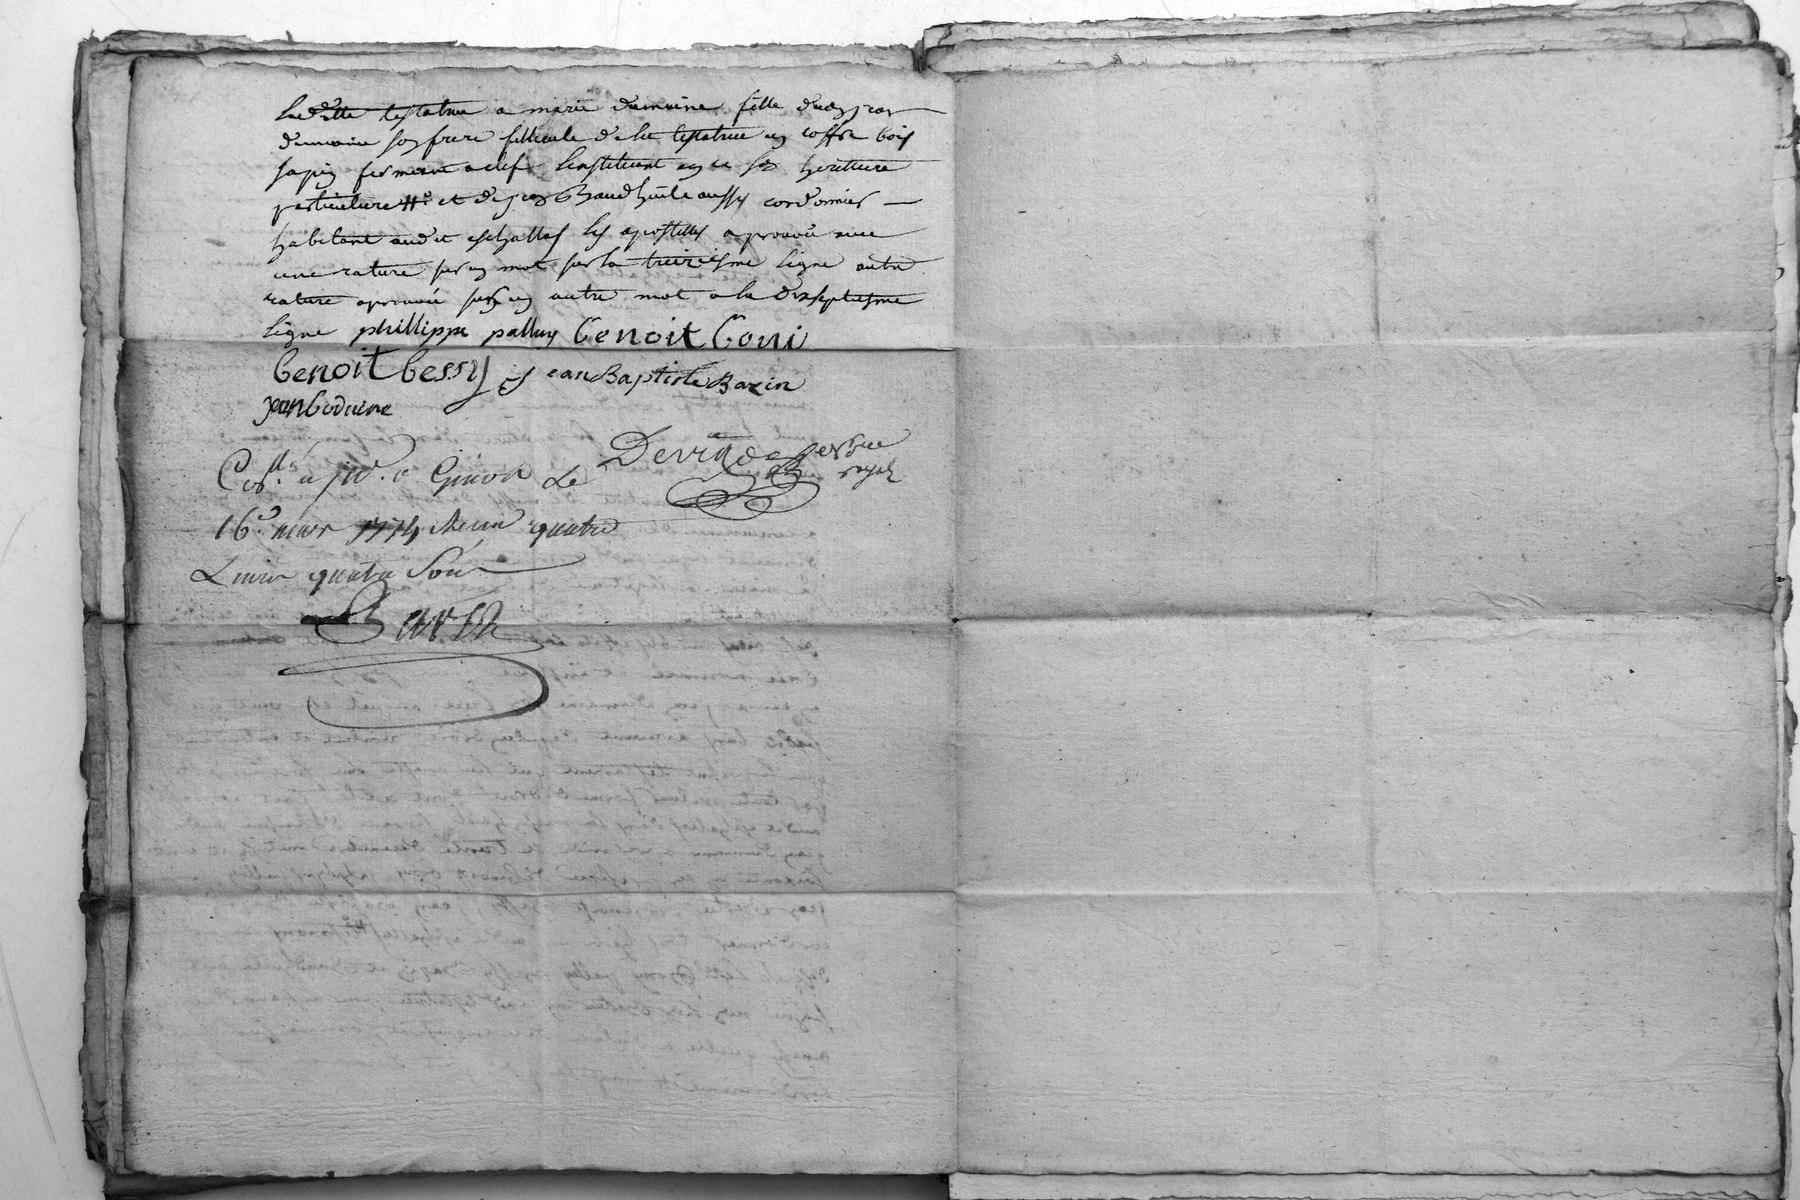 ladette testatrice a marie dumoine fille dud jean
dumoine son frere fillieule de la testatrice un coffre bois
sapin fermant a clef linstituant en ce son heritiere
particuliere et de jean aussy cordonnier
habitant audit eschallas les apostilles aprouvé avec
une rature sur un mot sur la treizieme ligne autre
rature aprouvé sur un autre mot a la dixseptiesme
ligne phillippe palluy benoit boni
benoit bessy jean Baptiste Bazin
jean boduine
Devin
royal
Conllé a a Givors Le
16e mars 1774 Reçu quatre
Livres quatre Sous